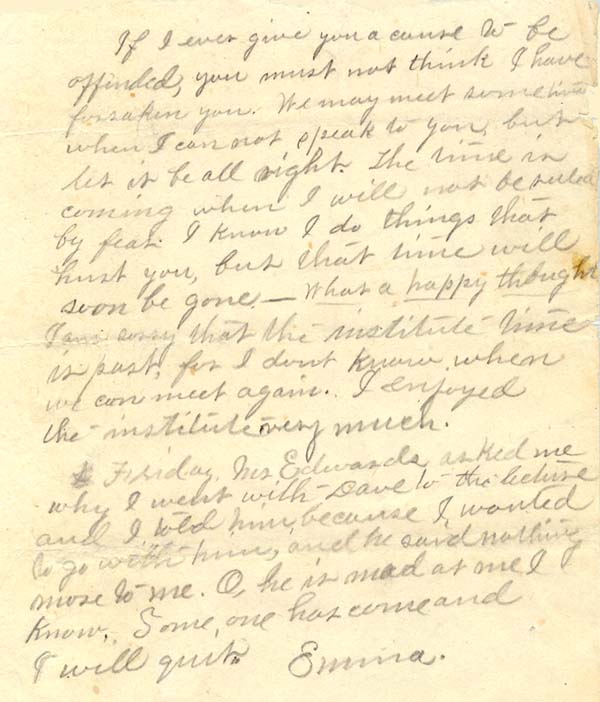 If I ever give you a cause to be
offended, you must not think I have
forsaken you. We may meet sometime
when I can not speak to you, but
let it be all right. The time is
coming when I will not be ruled
by fear. I know I do things that
hurt you, but that time will
soon be gone — What a happy thought
I am sorry that the institute time
is past, for I dont know when
we can meet again. I enjoyed
the institute very much.
Friday Mr Edwards asked me
why I went with Dave to the lecture
and I told him because I wanted
to go with him, and he said nothing
more to me. O, he is mad at me I
know. Some one has come and
I will quit. Emma.